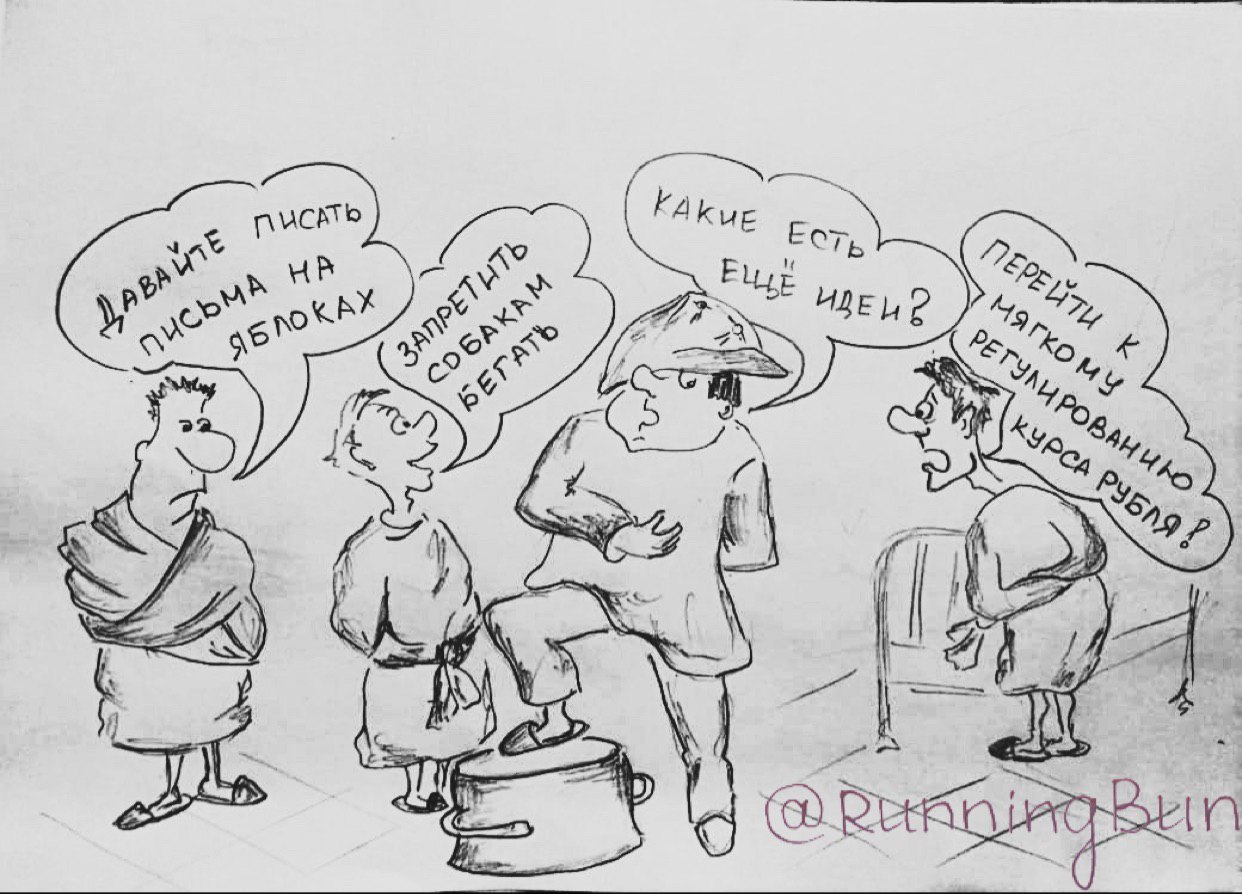 ДАВАЙТЕ ПИСАТЬ
ПИСЬМА НА
ЯБЛОКАХ
ЗАПРЕТИТЬ
СОБАКАМ
БЕГАТЬ
КАКИЕ ЕСТЬ
ЕЩЁ ИДЕИ?
ПЕРЕЙТИ К
МЯГКОМУ
РЕГУЛИРОВАНИЮ
КУРСА РУБЛЯ?
@RunningBun